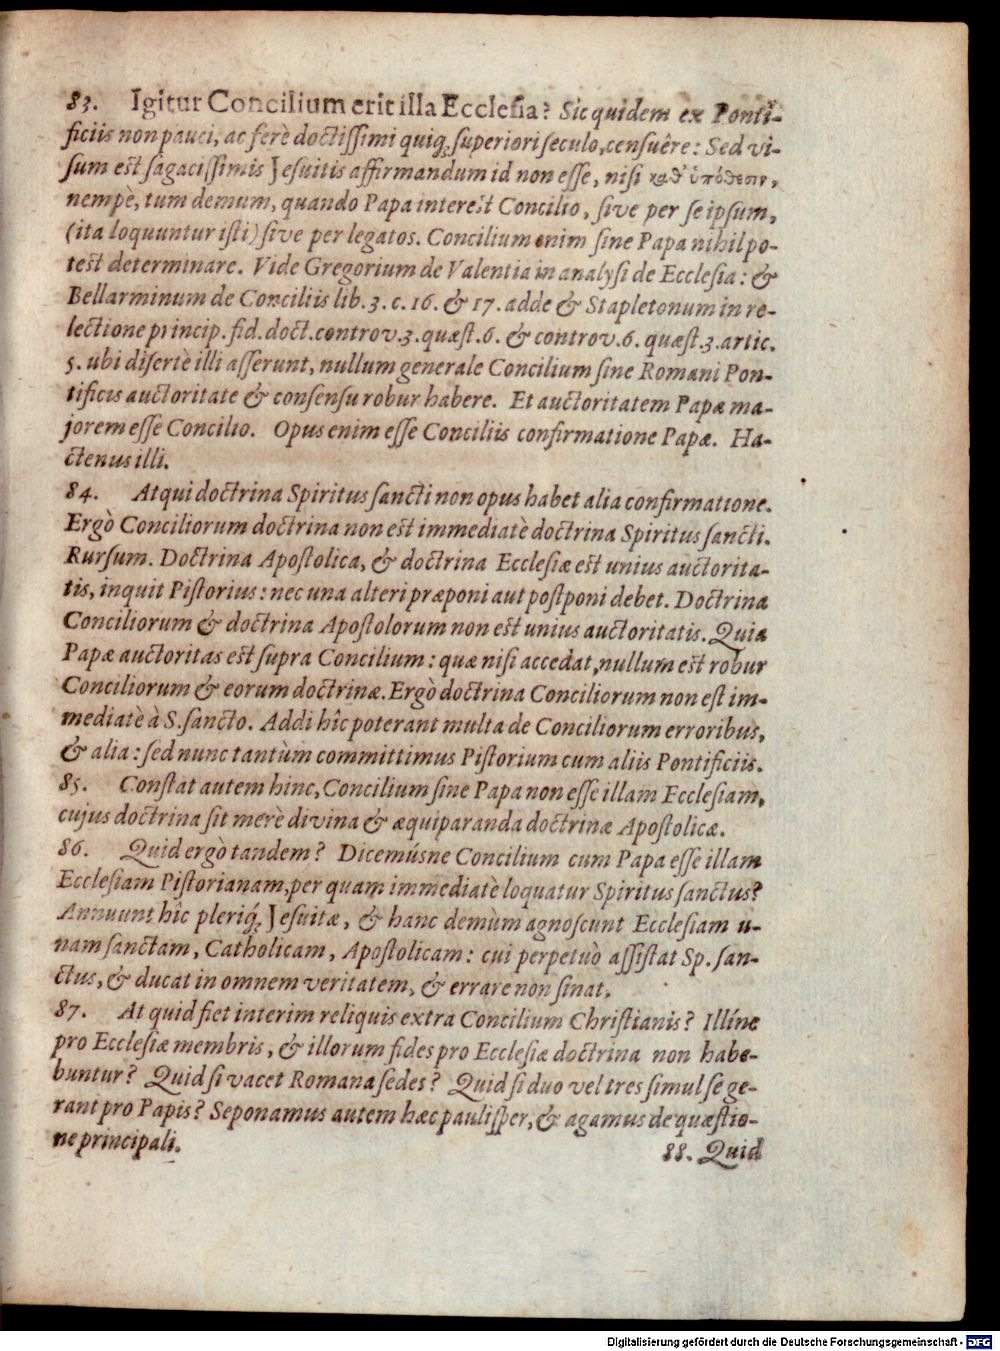 83. Igitur Concilium erit illa Ecclesia? Sic quidem ex Ponti-
ficiis non pauci, ac ferè doctissimi quiq; superiori seculo, censuêre: Sed vi-
sum est sagacissimis Jesuitis affirmandum id non esse, nisi καθ' ὑπόθεσιν,
nempè, tum demum, quando Papa interest Concilio, sive per se ipsum,
(ita loquuntur isti) sive per legatos. Concilium enim sine Papa nihil po-
test determinare. Vide Gregorium de Valentia in analysi de Ecclesia: &
Bellarminum de Conciliis lib. 3. c. 16. & 17. adde & Stapletonum in re-
lectione princip. fid. doct. controv. 3. quæst. 6. & controv. 6. quæst. 3. artic.
5. ubi disertè illi asserunt, nullum generale Concilium sine Romani Pon-
tificis auctoritate & consensu robur habere. Et auctoritatem Papæ ma-
jorem esse Concilio. Opus enim esse Conciliis confirmatione Papæ. Ha-
ctenus illi.
84. Atqui doctrina Spiritus sancti non opus habet alia confirmatione.
Ergò Conciliorum doctrina non est immediatè doctrina Spiritus sancti.
Rursum. Doctrina Apostolica, & doctrina Ecclesiæ est unius auctorita-
tis, inquit Pistorius: nec una alteri præponi aut postponi debet. Doctrina
Conciliorum & doctrina Apostolorum non est unius auctoritatis. Quia
Papæ auctoritas est supra Concilium: quæ nisi accedat, nullum est robur
Conciliorum & eorum doctrinæ. Ergò doctrina Conciliorum non est im-
mediatè à S. sancto. Addi hîc poterant multa de Conciliorum erroribus,
& alia: sed nunc tantùm committimus Pistorium cum aliis Pontificiis.
85. Constat autem hinc, Concilium sine Papa non esse illam Ecclesiam,
cujus doctrina sit merè divina & æquiparanda doctrinæ Apostolicæ.
86. Quid ergò tandem? Dicemúsne Concilium cum Papa esse illam
Ecclesiam Pistorianam, per quam immediatè loquatur Spiritus sanctus?
Annuunt hîc pleriq́; Jesuitæ, & hanc demùm agnoscunt Ecclesiam u-
nam sanctam, Catholicam, Apostolicam: cui perpetuò assistat Sp. san-
ctus, & ducat in omnem veritatem, & errare non sinat.
87. At quid fiet interim reliquis extra Concilium Christianis? Illíne
pro Ecclesiæ membris, & illorum fides pro Ecclesiæ doctrina non habe-
buntur? Quid si vacet Romana sedes? Quid si duo vel tres simul se ge-
rant pro Papis? Seponamus autem hæc paulisper, & agamus de quæstio-
ne principali.
88. Quid
Digitalisierung gefördert durch die Deutsche Forschungsgemeinschaft - DFG